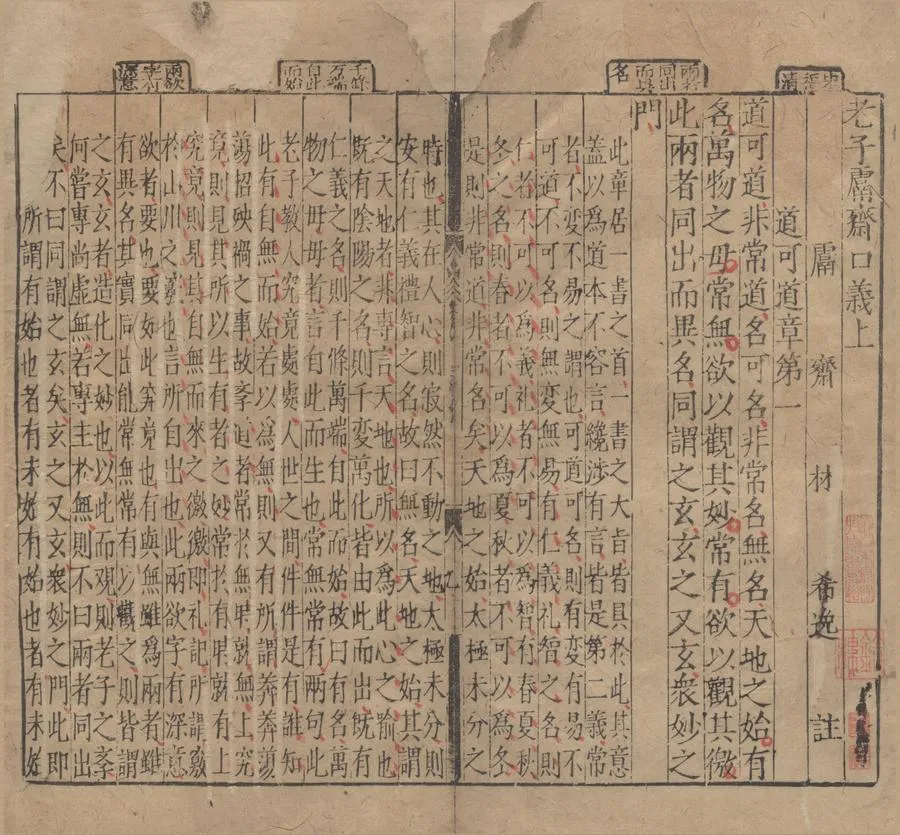 老子鬳齋口義上
鬳齋林希逸註
道可道章第一
道可道非常道名可名非常名無名天地之始有
名萬物之母常無欲以觀其妙常有欲以觀其徼
此兩者同出而異名同謂之玄玄之又玄衆妙之
門
此章居一書之首一書之大旨皆具於此其意
蓋以爲道本不容言纔涉有言皆是第二義常
者不變不易之謂也可道可名則有変有易不
可道不可名則無變無易有仁義礼智之名則
仁者不可以爲義礼者不可以爲智有春夏秋
冬之名則春者不可以爲夏秋者不可以爲冬
是則非常道非常名矣天地之始太極未分之
時也其在人心則寂然不動之地太極未分則
安有仁義禮智之名故曰無名天地之始其謂
之天地者非專言天地也所以爲此心之喻也
既有陰陽之名則千變萬化皆由此而出既有
仁義之名則千條萬端自此而始故曰有名萬
物之母母者言自此而生也常無常有兩句此
老子教人究竟處處人世之間件件是有誰知
此有自無而始若以爲無則又有所謂莽莽蕩
蕩招殃禍之事故斈道者常於無時就無上究
竟則見其所以生有者之妙常於有時就有上
究竟則見其自無而來之徼徼即礼記所謂竅
於山川之竅也言所自出也此兩欲字有深意
欲者要也要如此究竟也有與無雖爲兩者雖
有異名其實同出能常無常有以觀之則皆謂
之玄玄者造化之妙也以此而觀則老子之斈
何嘗專尚虛無若專主於無則不曰兩者同出
矣不曰同謂之玄矣玄之又玄衆妙之門此即
所謂有始也者有未始有始也者有未始
兩者同出而異名
千條万端自此而始
兩欲字有深意